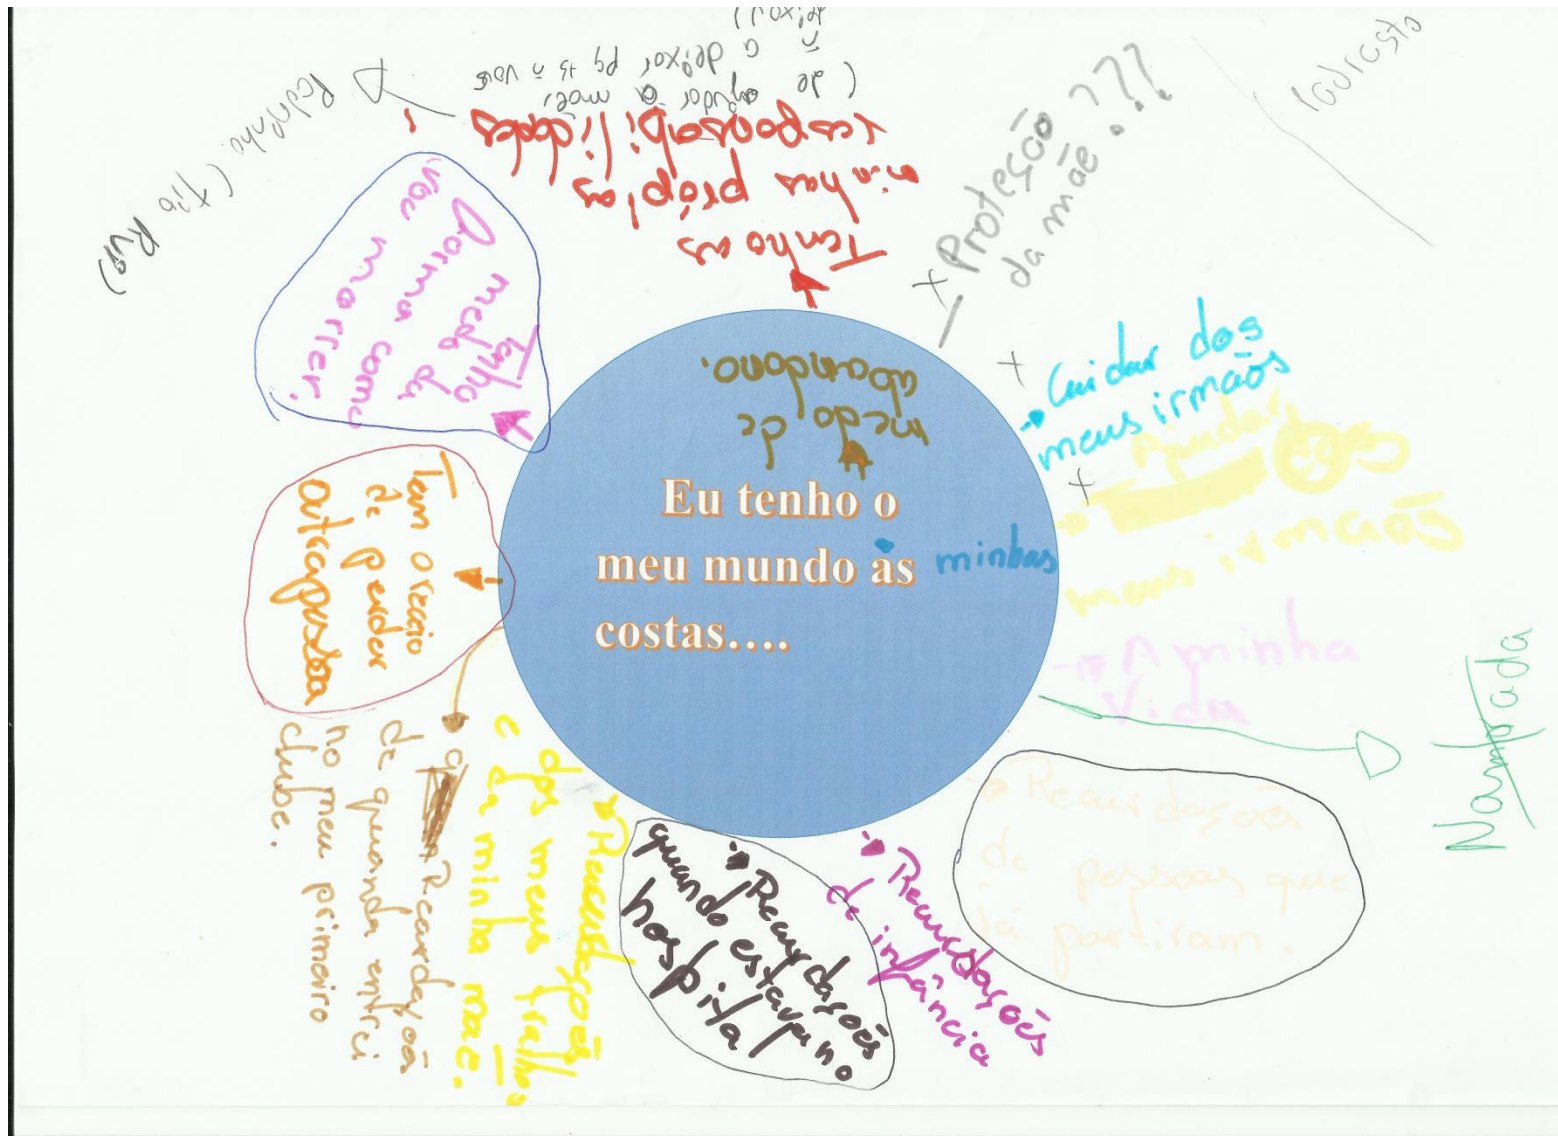 Eu tenho o
meu mundo às minhas
costas....
medo de
abandono.
Tenho as
minhas própias
responsabilidades
(de ajudar a mãe,
ñ a deixar pq ts ñ vais
Padrinho (tio Rui)
Proteção ???
da mãe.
Padrasto
Cuidar dos
meus irmãos
Ajudar os
meus irmaõs
A minha
Vida
Namorada
Recurdaçoã
de pessoas que
já partiram.
Recurdações
de infância
Recurdações
quando estava no
hospital
Recurdações
dos meus tralhos
e da minha mãe.
Recardaçoã
de quando entrei
no meu primeiro
clube.
Tem o receio
de perder
outra pessoa
Tenho
medo da
forma como
vou morrer.